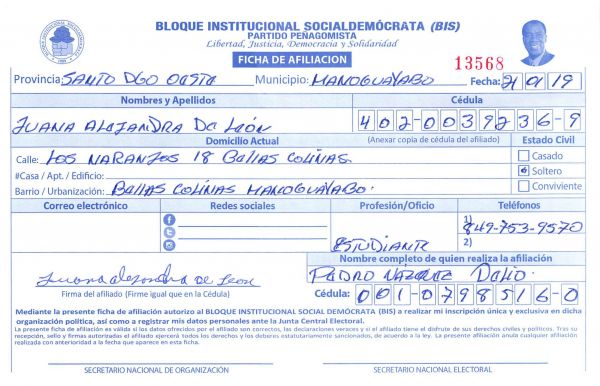 BLOQUE INSTITUCIONAL SOCIALDEMÓCRATA (BIS)
PARTIDO PEÑAGOMISTA
Libertad, Justicia, Democracia y Solidaridad
FICHA DE AFILIACION
13568
Provincia: SANTO DGO OESTE Municipio: MANOGUAYABO Fecha: 21 01 19
Nombres y Apellidos Cédula
JUANA ALEJANDRA De León 402-0039236-9
Domicilio Actual (Anexar copia de cédula del afiliado) Estado Civil
Calle: LOS NARANJOS 18 Bellas COLINAS. Casado
#Casa / Apt. / Edificio: Soltero
Barrio / Urbanización: Bellas COLINAS MANOGUAYABO. Conviviente
Correo electrónico Redes sociales Profesión/Oficio Teléfonos
1) 849-753-9570
ESTUDIANTE 2)
Nombre completo de quien realiza la afiliación
Juana alejandra de León PEDRO
Firma del afiliado (Firme igual que en la Cédula) Cédula: 001-0798516-0
Mediante la presente ficha de afiliación autorizo al BLOQUE INSTITUCIONAL SOCIAL DEMÓCRATA (BIS) a realizar mi inscripción única y exclusiva en dicha
organización política, así como a registrar mis datos personales ante la Junta Central Electoral.
La presente ficha de afiliación es válida si los datos ofrecidos por el afiliado son correctos, las declaraciones veraces y si el afiliado tiene el disfrute de sus derechos civiles y políticos. Tras su
recepción, sello y firmas autorizadas el afiliado ejercerá todos los derechos y los deberes estatutariamente sancionados, de acuerdo a la ley. La presente afiliación anula cualquier afiliación
realizada con anterioridad a la fecha que aparece en esta ficha.
SECRETARIO NACIONAL DE ORGANIZACIÓN SECRETARIO NACIONAL ELECTORAL